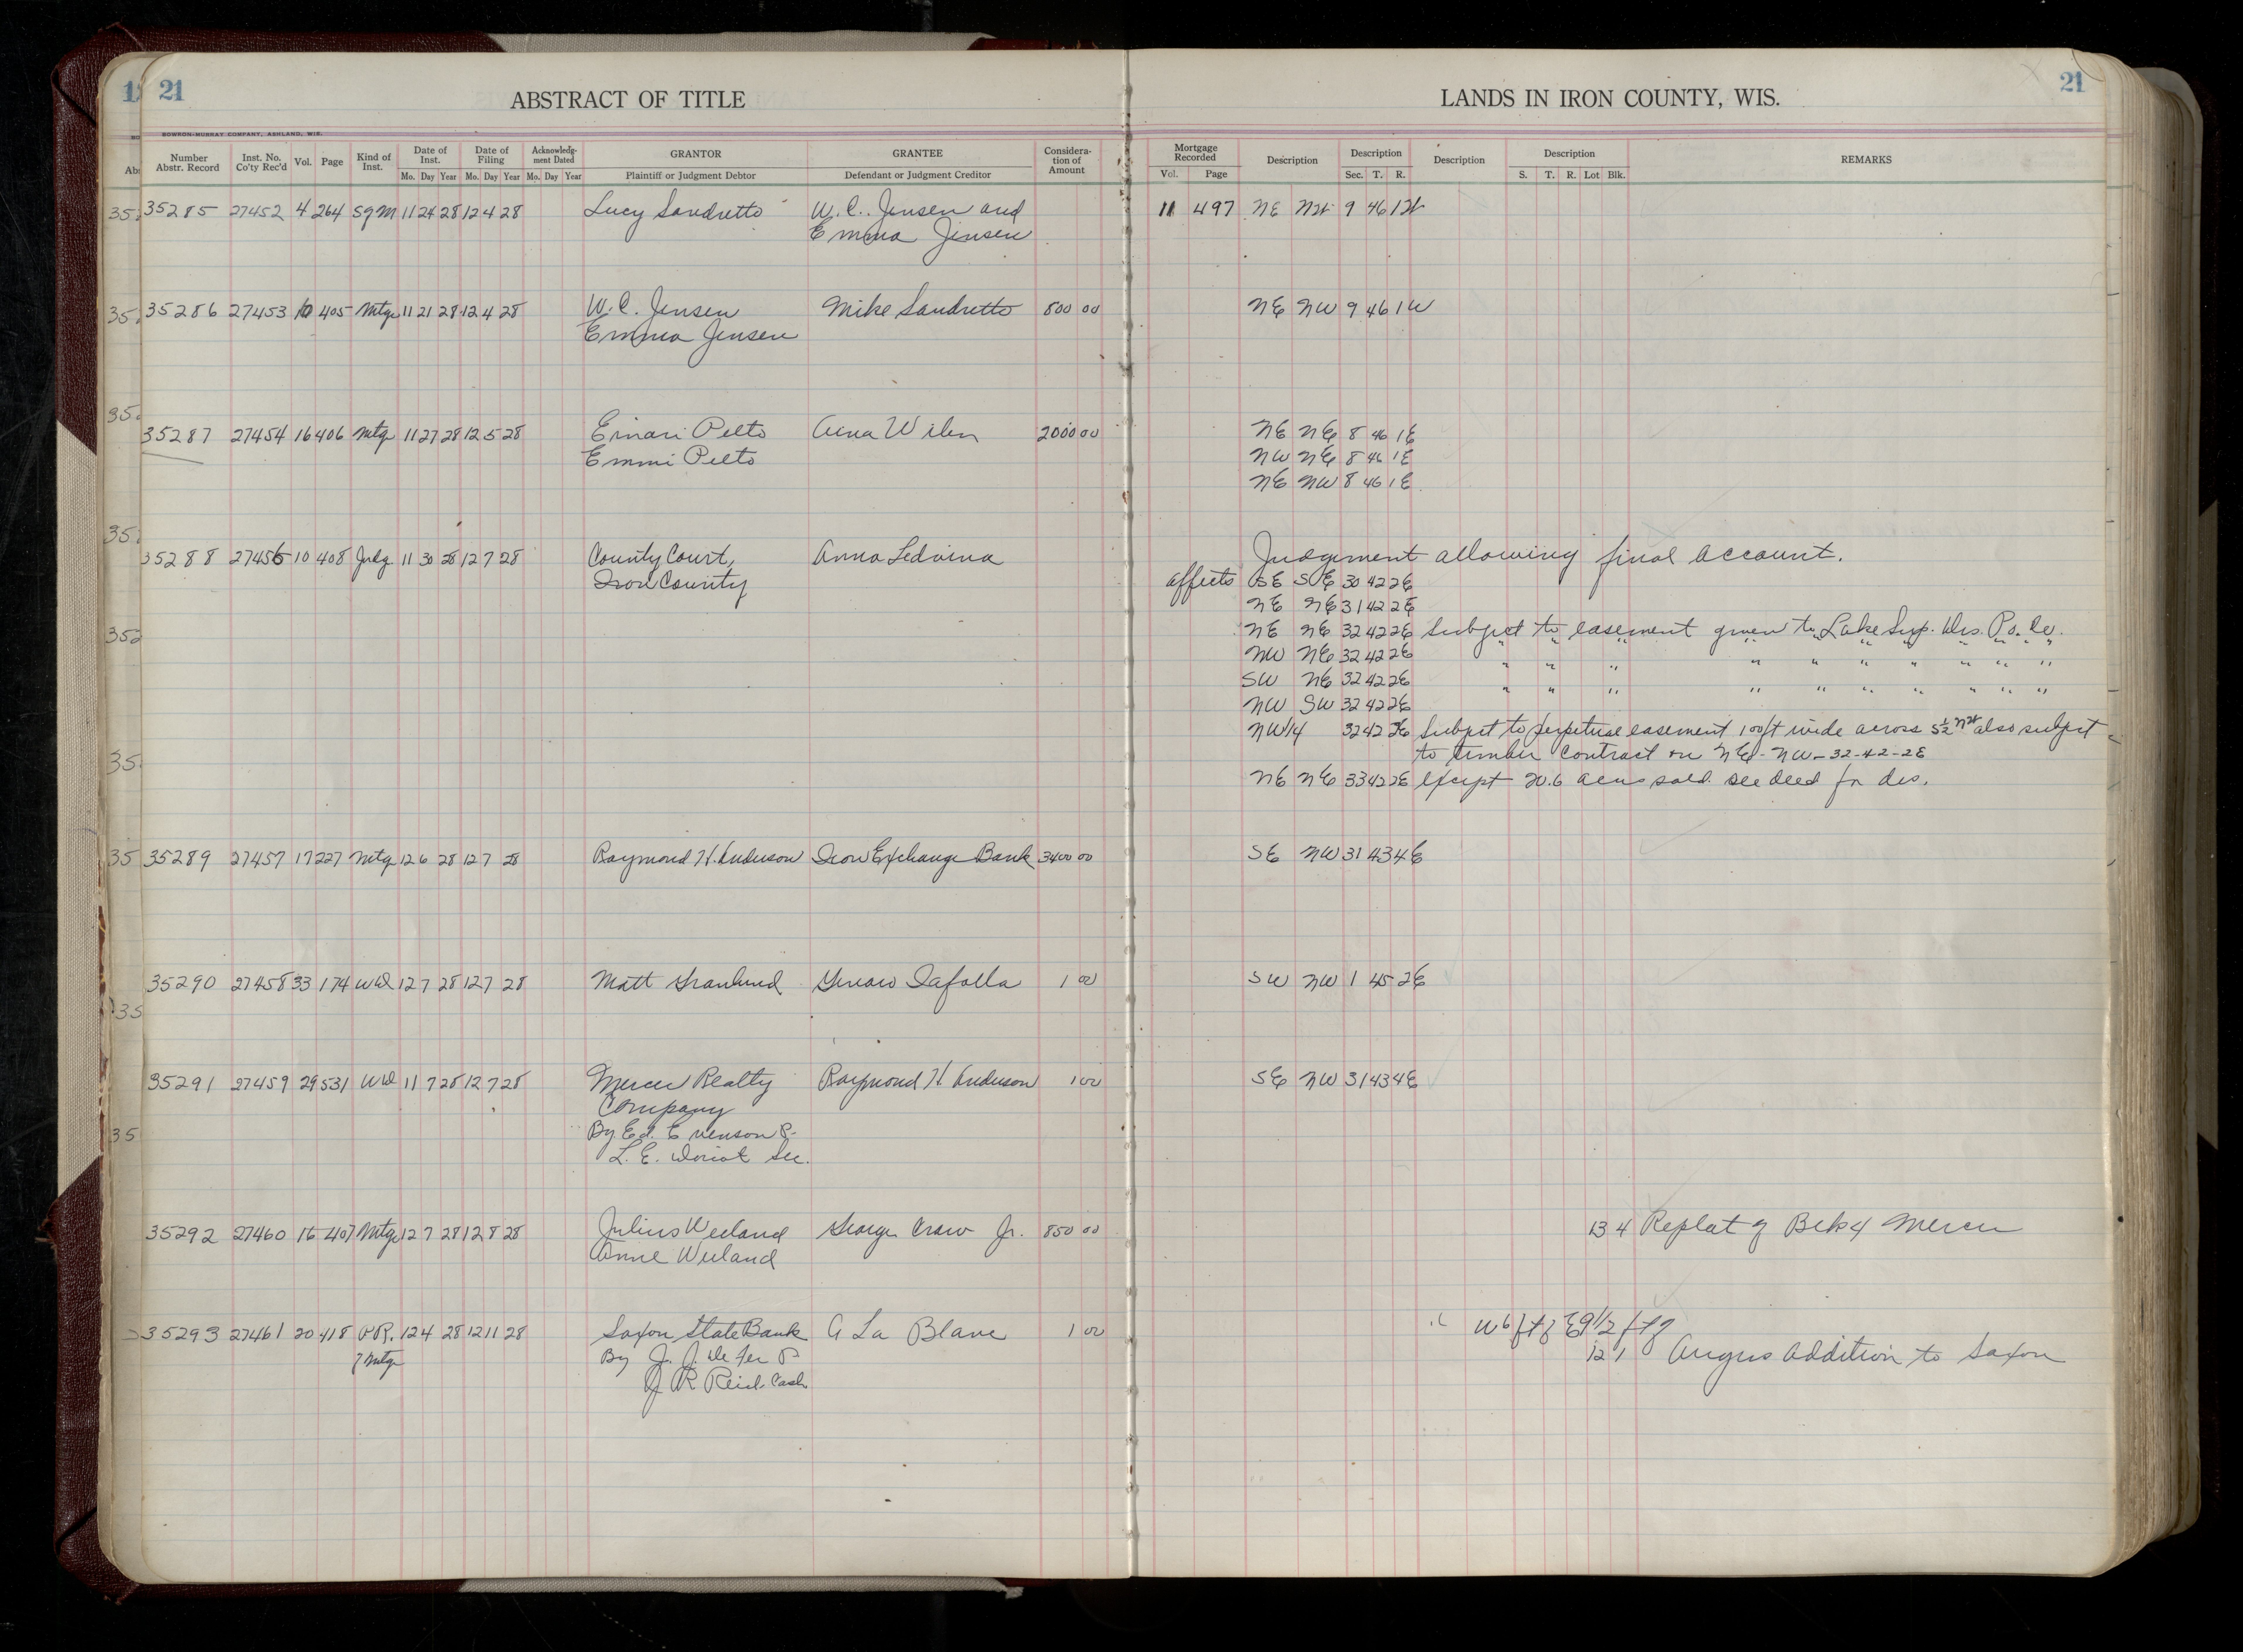 21
ABSTRACT OF TITLE
LANDS IN IRON COUNTY, WIS.
21
BOWRON-MURRAY COMPANY, ASHLAND, WIS.
Number Abstr. Record Inst. No. Co'ty Rec'd Vol. Page Kind of Inst. Date of Inst. Date of Filing Acknowledg-ment Dated GRANTOR GRANTEE Considera-tion of Amount Mortgage Recorded Description Description Description Description REMARKS
Mo. Day Year Mo. Day Year Mo. Day Year Plaintiff or Judgment Debtor Defendant or Judgment Creditor Vol. Page Sec. T. R. S. T. R. Lot Blk.
35285 27452 4 264 SgM 11 24 28 12 4 28 Lucy Sandretto W. C. Jensen and 11 497 NE NW 9 46 1W
Emma Jensen
35286 27453 10 405 Mtge 11 21 28 12 4 28 W. C. Jensen Mike Sandretto 800 00 NE NW 9 46 1W
Emma Jensen
35287 27454 16 406 Mtg 11 27 28 12 5 28 Einari Pelto Anna Wilen 2000 00 NE NE 8 46 1E
Emmi Pelto NW NE 8 46 1E
NE NW 8 46 1E
35288 27456 10 408 Judg 11 30 28 12 7 28 County Court, Anna Ledvina Judgement allowing final account.
Iron County affects SE SE 30 42 2E
NE NE 31 42 2E
NE NE 32 42 2E Subject to easement given to Lake Sup. Dis. Po. Co.
NW NE 32 42 2E " " " " " " " " " "
SW NE 32 42 2E " " " " " " " " " "
NW SW 32 42 2E
NW1/4 32 42 2E Subject to perpetual easement 100ft wide across S1/2 NW also subject
to timber contract on NE-NW-32-42-2E
NE NE 33 42 2E except 20.6 acres sold. see deed for des.
35289 27457 17 227 Mtg 12 6 28 12 7 28 Raymond H. Anderson Iron Exchange Bank 3400 00 SE NW 31 43 4E
35290 27458 33 174 WD 12 7 28 12 7 28 Matt Granlund Genaro Iafolla 1 00 SW NW 1 45 2E
35291 27459 29 531 WD 11 7 28 12 7 28 Mercer Realty Raymond H. Anderson 1 00 SE NW 31 43 4E
Company
By Ed. Evenson P.
L. E. Doriot Sec.
35292 27460 16 407 Mtge 12 7 28 12 8 28 Julius Weiland George Craw Jr. 850 00 13 4 Replat of Blk 4 Mercer
Anne Weiland
35293 27461 20 418 P.R. 12 4 28 12 11 28 Saxon State Bank A La Blanc 1 00 W6ft of E91/2 ft of
of Mtge By J. J. Defer P 12 1 Angus Addition to Saxon
J R Reid Cash